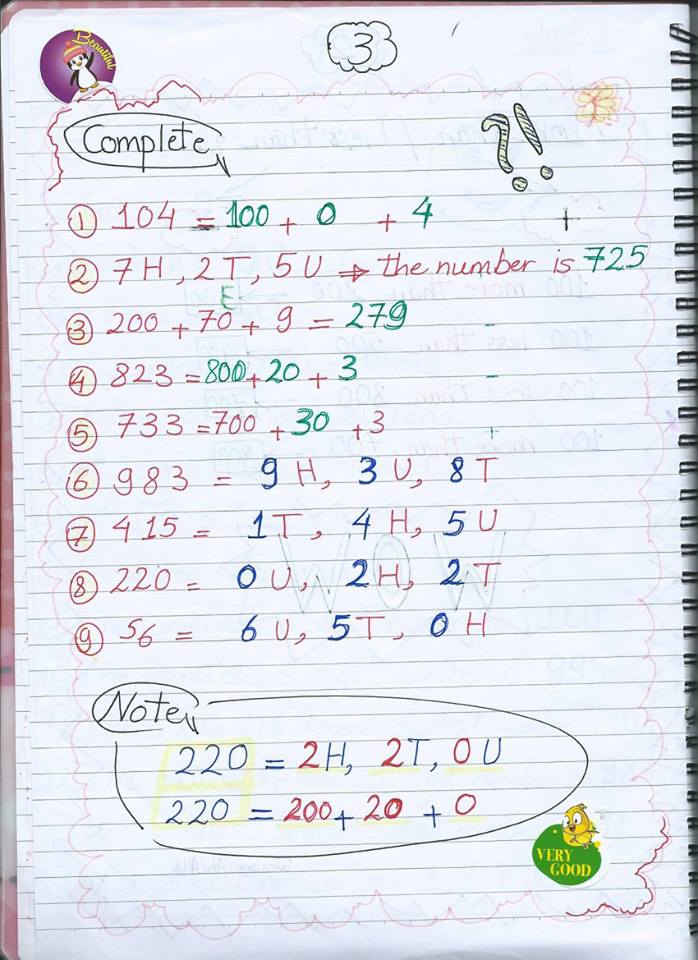 Beautiful
3
Complete
?!
① 104 = 100 + 0 + 4
② 7H, 2T, 5U ⇒ the number is 725
E
③ 200 + 70 + 9 = 279
④ 823 = 800 + 20 + 3
⑤ 733 = 700 + 30 + 3
⑥ 983 = 9 H, 3 U, 8 T
⑦ 415 = 1T, 4 H, 5 U
⑧ 220 = 0 U, 2 H, 2 T
⑨ 56 = 6 U, 5 T, 0 H
Note
220 = 2H, 2T, 0 U
220 = 200 + 20 + 0
VERY
GOOD